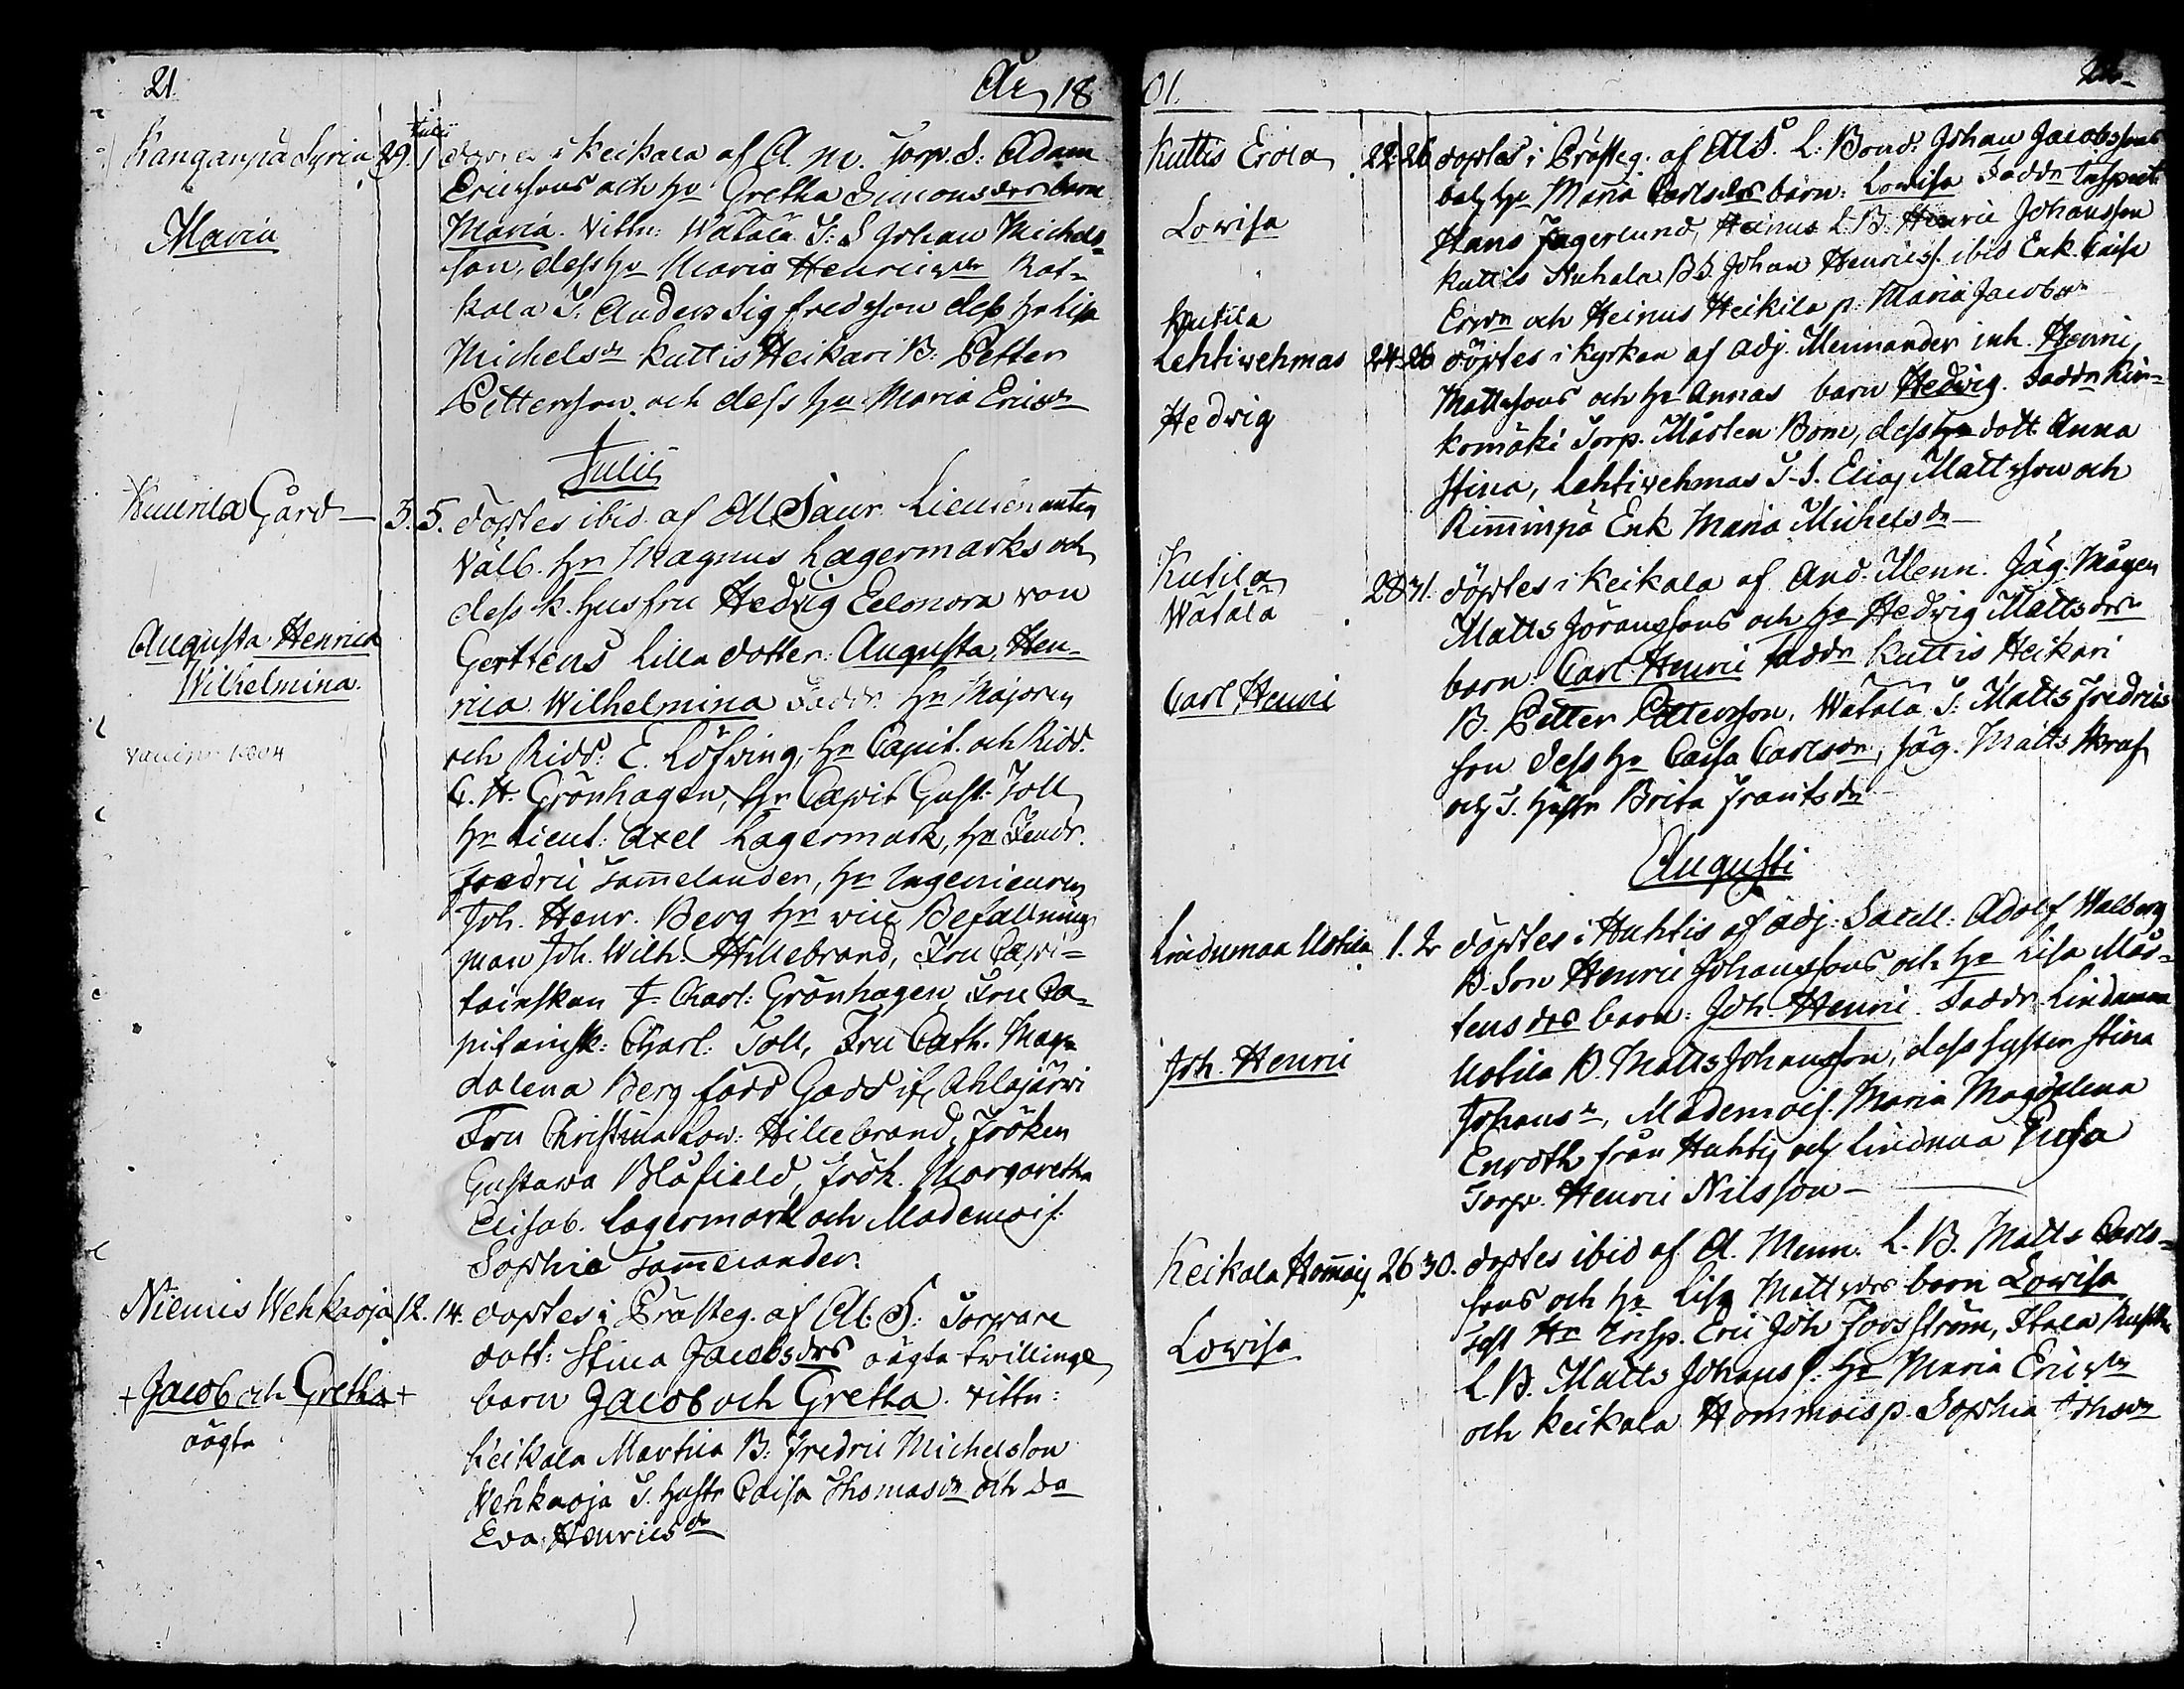 21.
År 18
Kanganpä Syria 29. 1
Julii
döptes i Keikala af A. M. Torp. S: Adam
Ericssons och hu Gretha Simonsdrs barn
Maria
Maria. Vittn: Watala T: S Johan Michels-
son, dess hu Maria Henricsdr Rat-
kala S. Anders Sigfredsson dess hu Lisa
Michelsdr Kuttis Heikari B: Petter
Pettersson och dess hu Maria Ericsdr
Julii
Kuurila Gård — 3. 5. döptes ibid. af M Saur. Lieutenanten
Välb. Hr Magnus Lagermarks och
dess k. husfru Hedvig Eleonora von
Augusta Henrica
Wilhelmina.
Gerttens lilla dotter: Augusta, Hen-
rica Wilhelmina Faddr Hr Majoren
vaccin. 1804
och Ridd: E. Löfving, Hr Capit. och Ridd.
C. H. Grönhagen, Hr Capit Gust: Toll
Hr Lieut: Axel Lagermark, Hr Fendr.
Fredric Tammelander, Hr Ingenieuren
Joh. Henr. Berg Hr vice Befallnings
man Joh. Wilh. Hillebrand, Fru Capi-
tainskan F. Charl: Grönhagen, Fru Ca-
pitainsk: Charl: Toll, Fru Cath. Mag-
dalena Berg född Gadd if. Ahlajärvi
Fru Christina Low: Hillebrand, Fröken
Gustava Blåfield, Frök. Margaretha
Elisab. Lagermark och Mademois.
Sophia Tammelander.
Niemis Wehkaoja 12. 14. döptes i Prästeg. af A. S: Torpare
dott: Stina Jacobsdrs oägta twillinge
+ Jacob och Gretha +
oägta
barn Jacob och Gretha. Vittn:
Keikala Marttila B: Fredric Michelsson
Wehkaoja T. hustr Caisa Thomasdr och Do
Eva Henricsdr
01.
22.
Kuttis Erola 22. 26 döptes i Prästeg. af A S. L: Bond: Johan Jacobssons
och hu Maria Carlsdrs barn: Lowisa Faddr Inspect.
Lowisa
Hans Fagerlund, Heinus L. B. Henric Johansson
Kuttis Anhala B S. Johan Henricss. ibid Enk. Caisa
Ersdr och Heinus Heikila p. Maria Jacobsdr
Kutila
Lehtiwehmas 24. 26 döptes i Kyrkan af Adj. Mennander inh. Henric
Hedvig
Mattssons och hu Annas barn Hedvig. Faddr Kin-
komäki Torp. Mårten Bom, dess dott. Anna
Stina, Lehtiwehmas T. S. Elias Mattsson och
Rimminpä Enk Maria Michelsdr —
Kutila
Watala 28. 31. döptes i Keikala af And. Menn. Jäg. Mågen
Matts Jöranssons och hu Hedvig Mattsdrs
Carl Henric
barn Carl Henric Faddr Kuttis Heikari
B. Petter Pettersson, Watala T: Matts Fredrics
son dess hu Caisa Carlsdr, Jäg. Matts Straf
och S. hustr Brita Frantsdr
Augusti
Lindumaa Uotila 1. 2 döptes i Huhtis af Adj: Sacell: Adolf Walberg
B. Son Henric Johanssons och hu Lisa Mår-
tensdrs barn: Joh Henric Faddr Lindumaa
Joh. Henric
Uotila B. Matts Johansson, dess syster Stina
Johansdr, Mademois. Maria Magdalena
Enroth från Huhtis och Lindumaa Pusa
Torpr. Henric Nilsson —
Keikala Hommois 26 30. döptes ibid af A. Menn. L. B. Matts Carls-
sons och hu Lisa Mattsdrs barn Lowisa
Lowisa
Test Hr Insp. Eric Joh Forsström, Stala Rusth.
L. B. Matts Johanss. hu Maria Ericsdr
och Keikala Hommois p. Sophia Johsdr